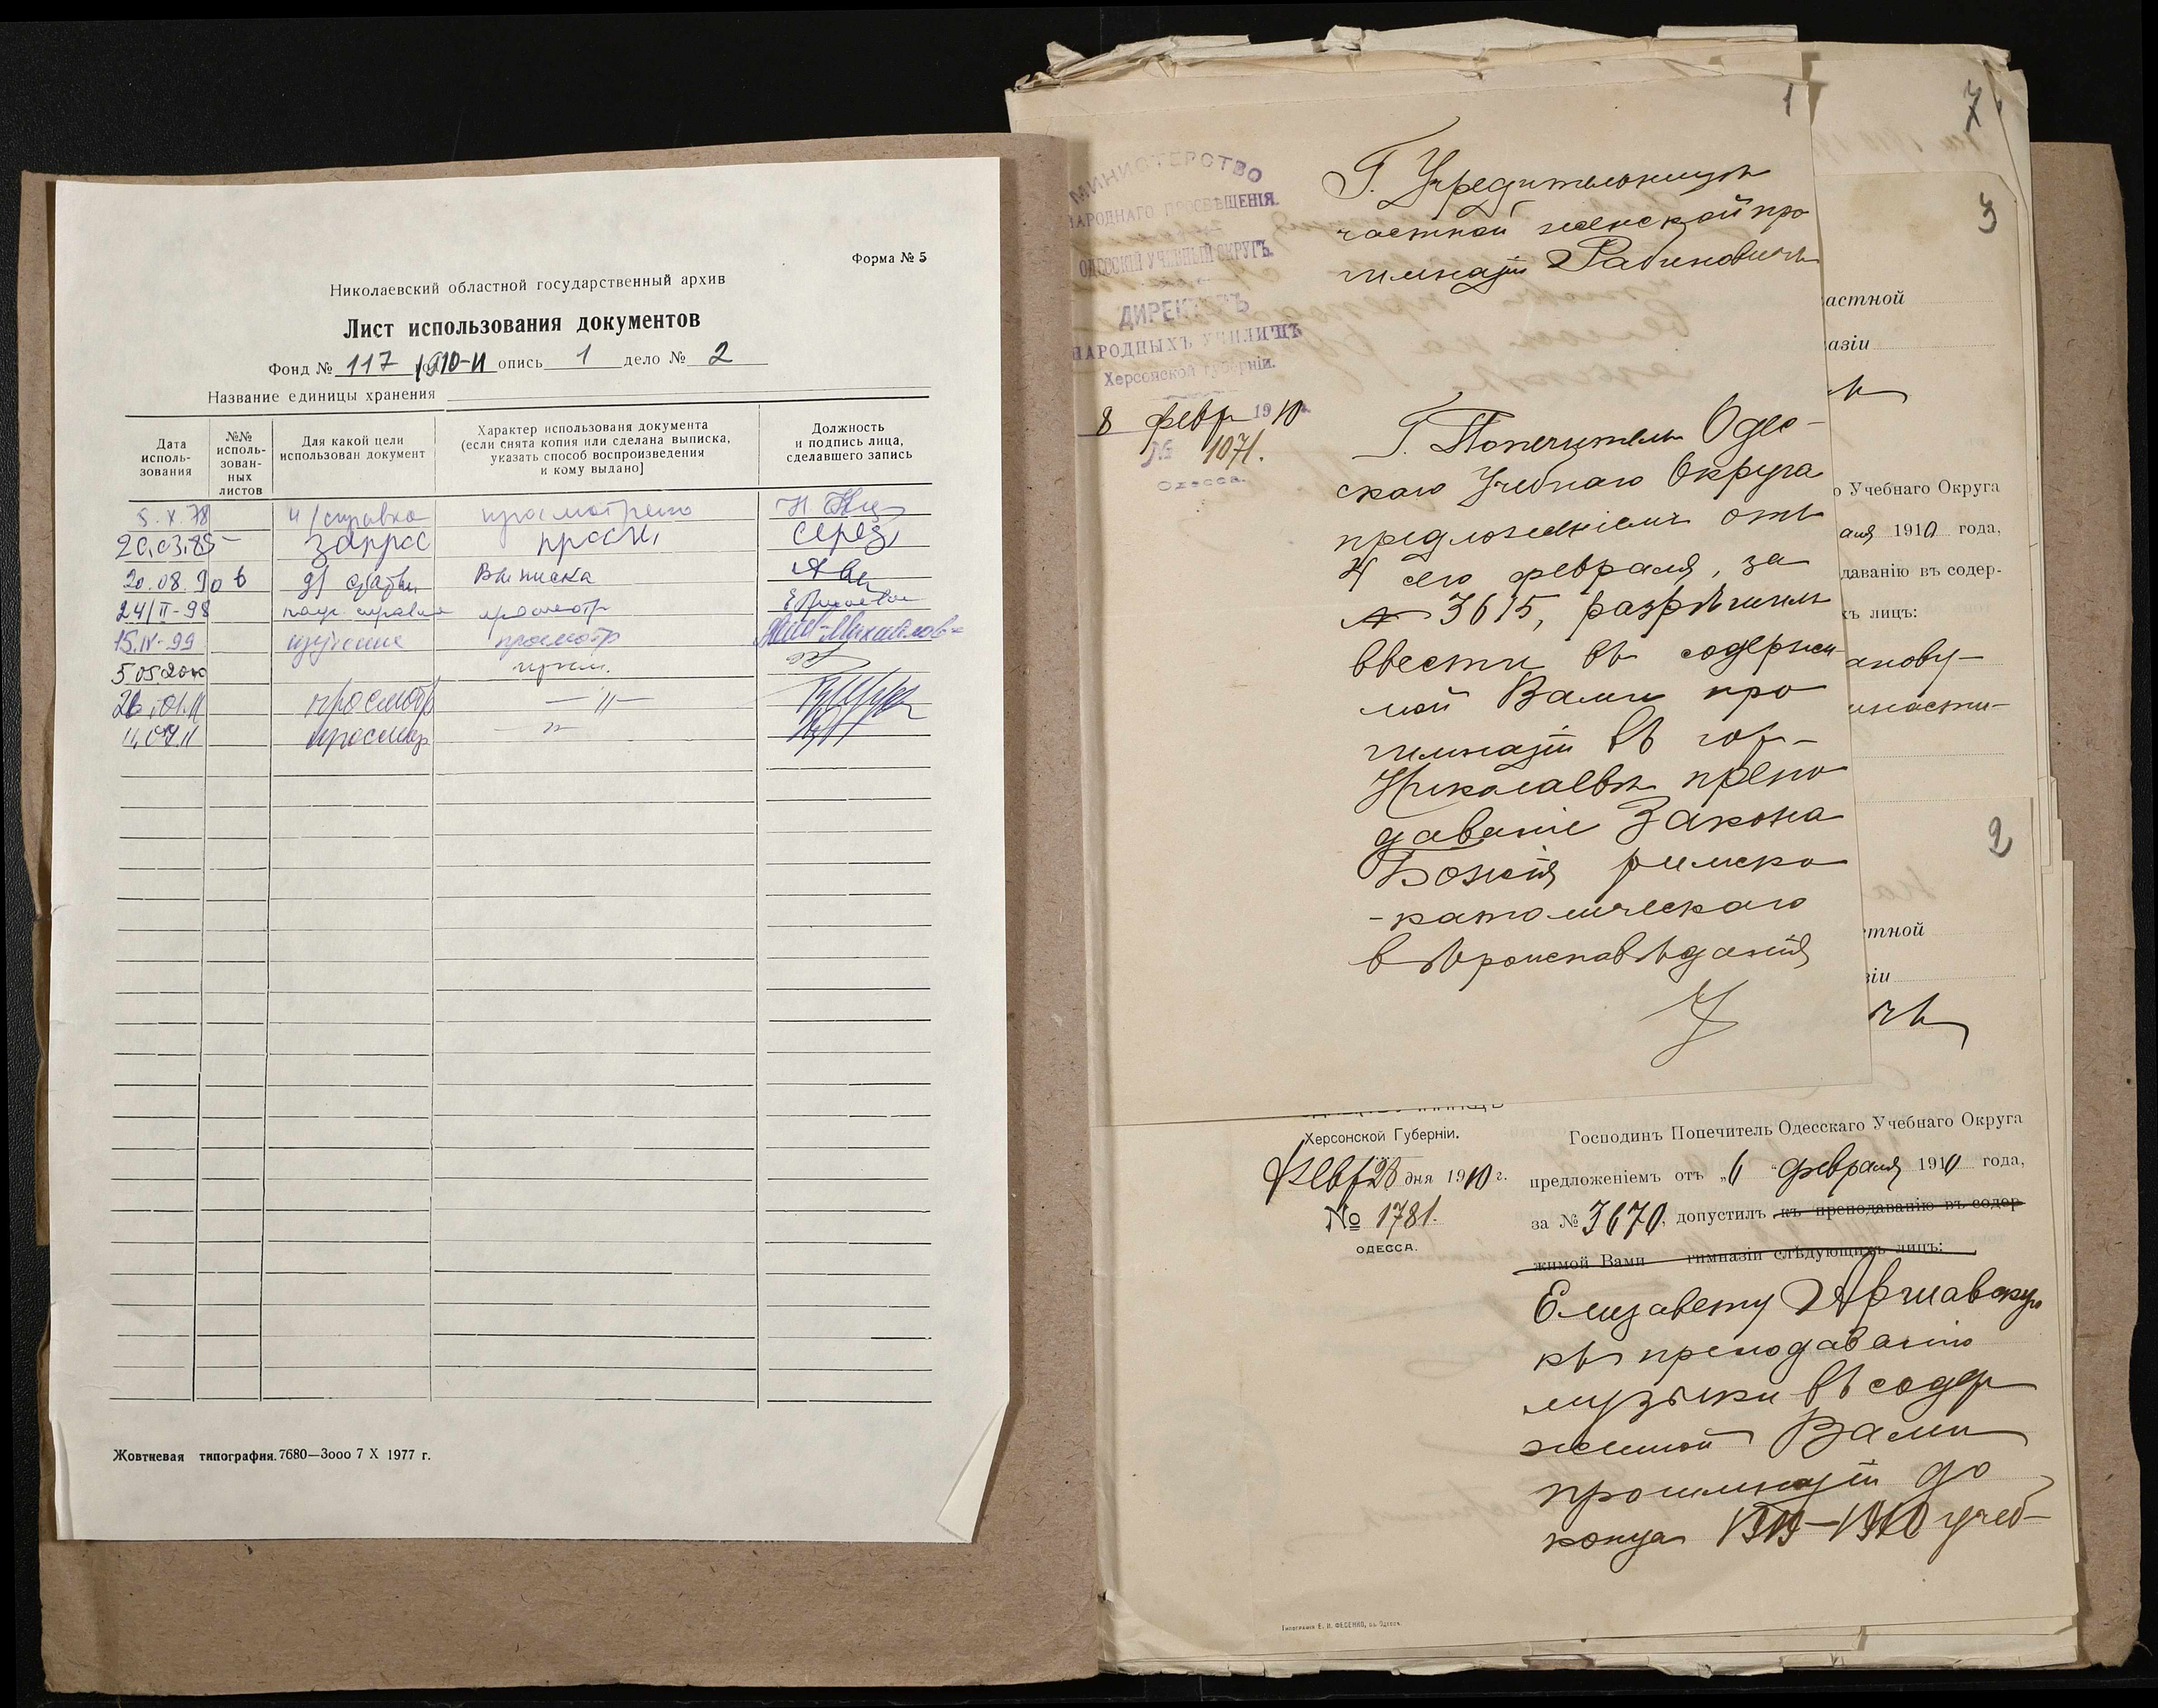 Форма № 5
Николаевский областной государственный архив
Лист использования документов
Фонд № 117 опись 1 дело № 2
Название единицы хранения
Дата исполь-зования
№№ исполь-зован-ных листов
Для какой цели использован документ
Характер использованя документа (если снята копия или сделана выписка, указать способ воспроизведения и кому выдано]
Должность и подпись лица, сделавшего запись
5.X.78 просмотрено
20.03.85 запрос
20.08.90 6 выписка
24/II-98 просмотр
15.IV-99 изучение просмотр
5 05 2000
26.01.11 просмотр —〃—
просмотр —〃—
Жовтневая типография. 7680—3000 7 X 1977 г.
1
МИНИСТЕРСТВО
НАРОДНАГО ПРОСВѢЩЕНІЯ.
ОДЕССКІЙ УЧЕБНЫЙ ОКРУГЪ.
ДИРЕКТОРЪ
НАРОДНЫХЪ УЧИЛИЩЪ
Херсонской губерніи.
8 февр 1910
№ 1071.
Одесса.
Г. Учредительницѣ
частной женской про
гимназіи Рабиновичъ
Г. Попечитель Одес-
скаго Учебнаго Округа
предложеніемъ отъ
4 сего февраля, за
№ 3615, разрѣшилъ
ввести въ содержи-
мой Вами про
гимназіи въ гор.
Николаевѣ препо
даваніе Закона
Божія римско
-католическаго
вѣроисповѣданія
7
3
астной
азіи
о Учебнаго Округа
аля 1910 года,
даванію въ содер-
хъ лицъ:
2
стной
зіи
чъ
Херсонской Губерніи.
Февр 28 дня 1910 г.
№ 1781.
ОДЕССА.
Господинъ Попечитель Одесскаго Учебнаго Округа
предложеніемъ отъ „6" февраля 1910 года,
за № 3670, допустилъ къ преподаванію въ содер
жимой Вами гимназіи слѣдующихъ лицъ:
Елизавету Аршавскую
къ преподаванію
музыки въ содер
жимой Вами
прогимназіи до
конца 1909—1910 учеб-
Типографія Е. И. ФЕСЕНКО, въ Одессѣ.